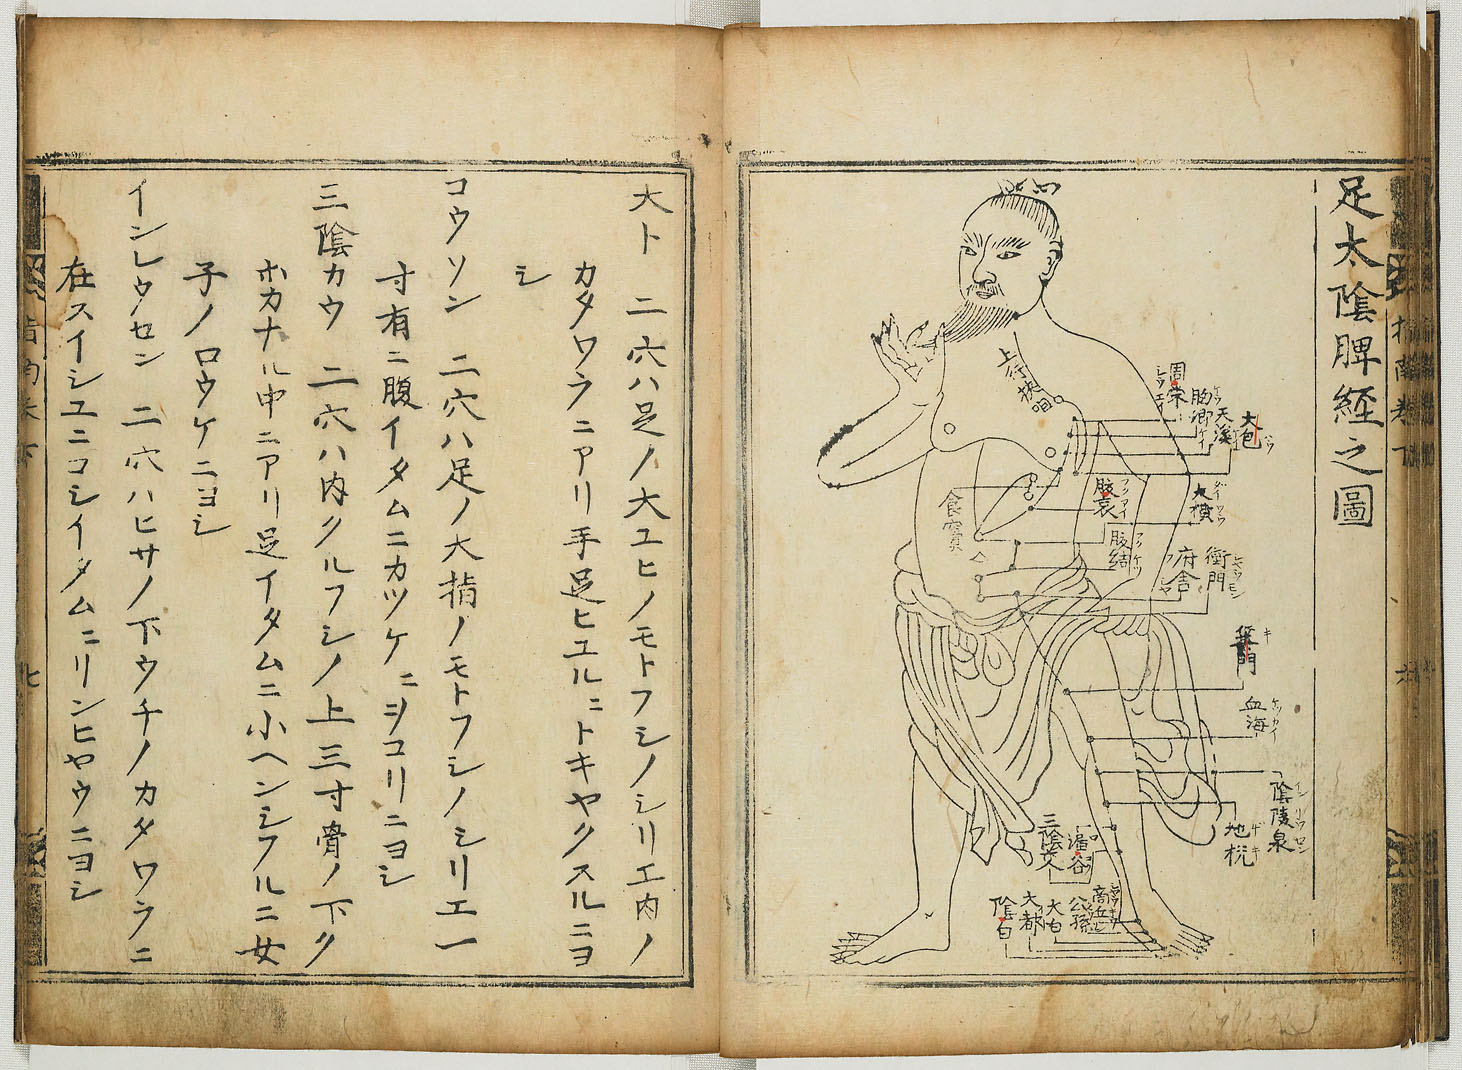 足太陰脾經之圖
大包
周栄
胸郷
天溪
上行挾咽
食竇
腹哀
大横
腹結
府舎
衝門
箕門
血海
陰陵泉
地机
三陰交
漏谷
高丘
公孫
大白
大都
陰白
大ト 二穴ハ足ノ大ユヒノモトフシノシリエ内ノ
カタワラニアリ手足ヒエルニトキヤクスルニヨ
シ
コウソン 二穴ハ足ノ大指ノモトフシノシリエ一
寸有ニ腹イタムニカツケニヲコリニヨシ
三陰カウ 二穴ハ内クルフシノ上三寸骨ノ下ク
ホカナル中ニアリ足イタムニ小ヘンシフルニ女
子ノロウケニヨシ
インレウノセン 二穴ハヒサノ下ウチノカタワラニ
在スイシユニコシイタムニリンヒヤウニヨシ